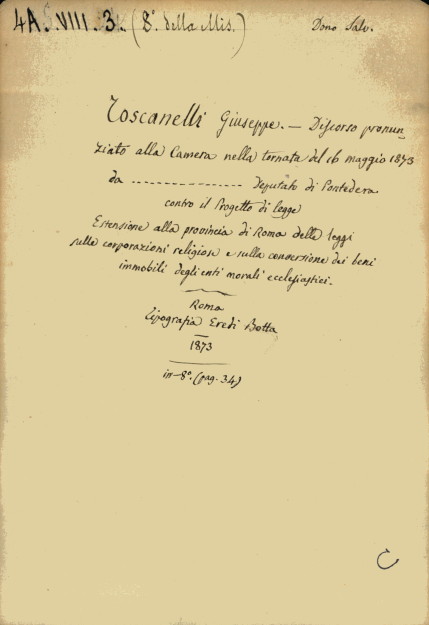 4A.S.VIII.3. (8° della Mis.) Dono Salv.
Toscanelli Giuseppe. — Discorso pronun
ziato alla Camera nella tornata del 16 maggio 1873
da ---------------- Deputato di Pontedera
contro il Progetto di legge
Estensione alla provincia di Roma delle leggi
sulle corporazioni religiose e sulla conversione dei beni
immobili degli enti morali ecclesiastici.
Roma
Tipografia Eredi Botta
1873
in-8°. (pag. 34)
C